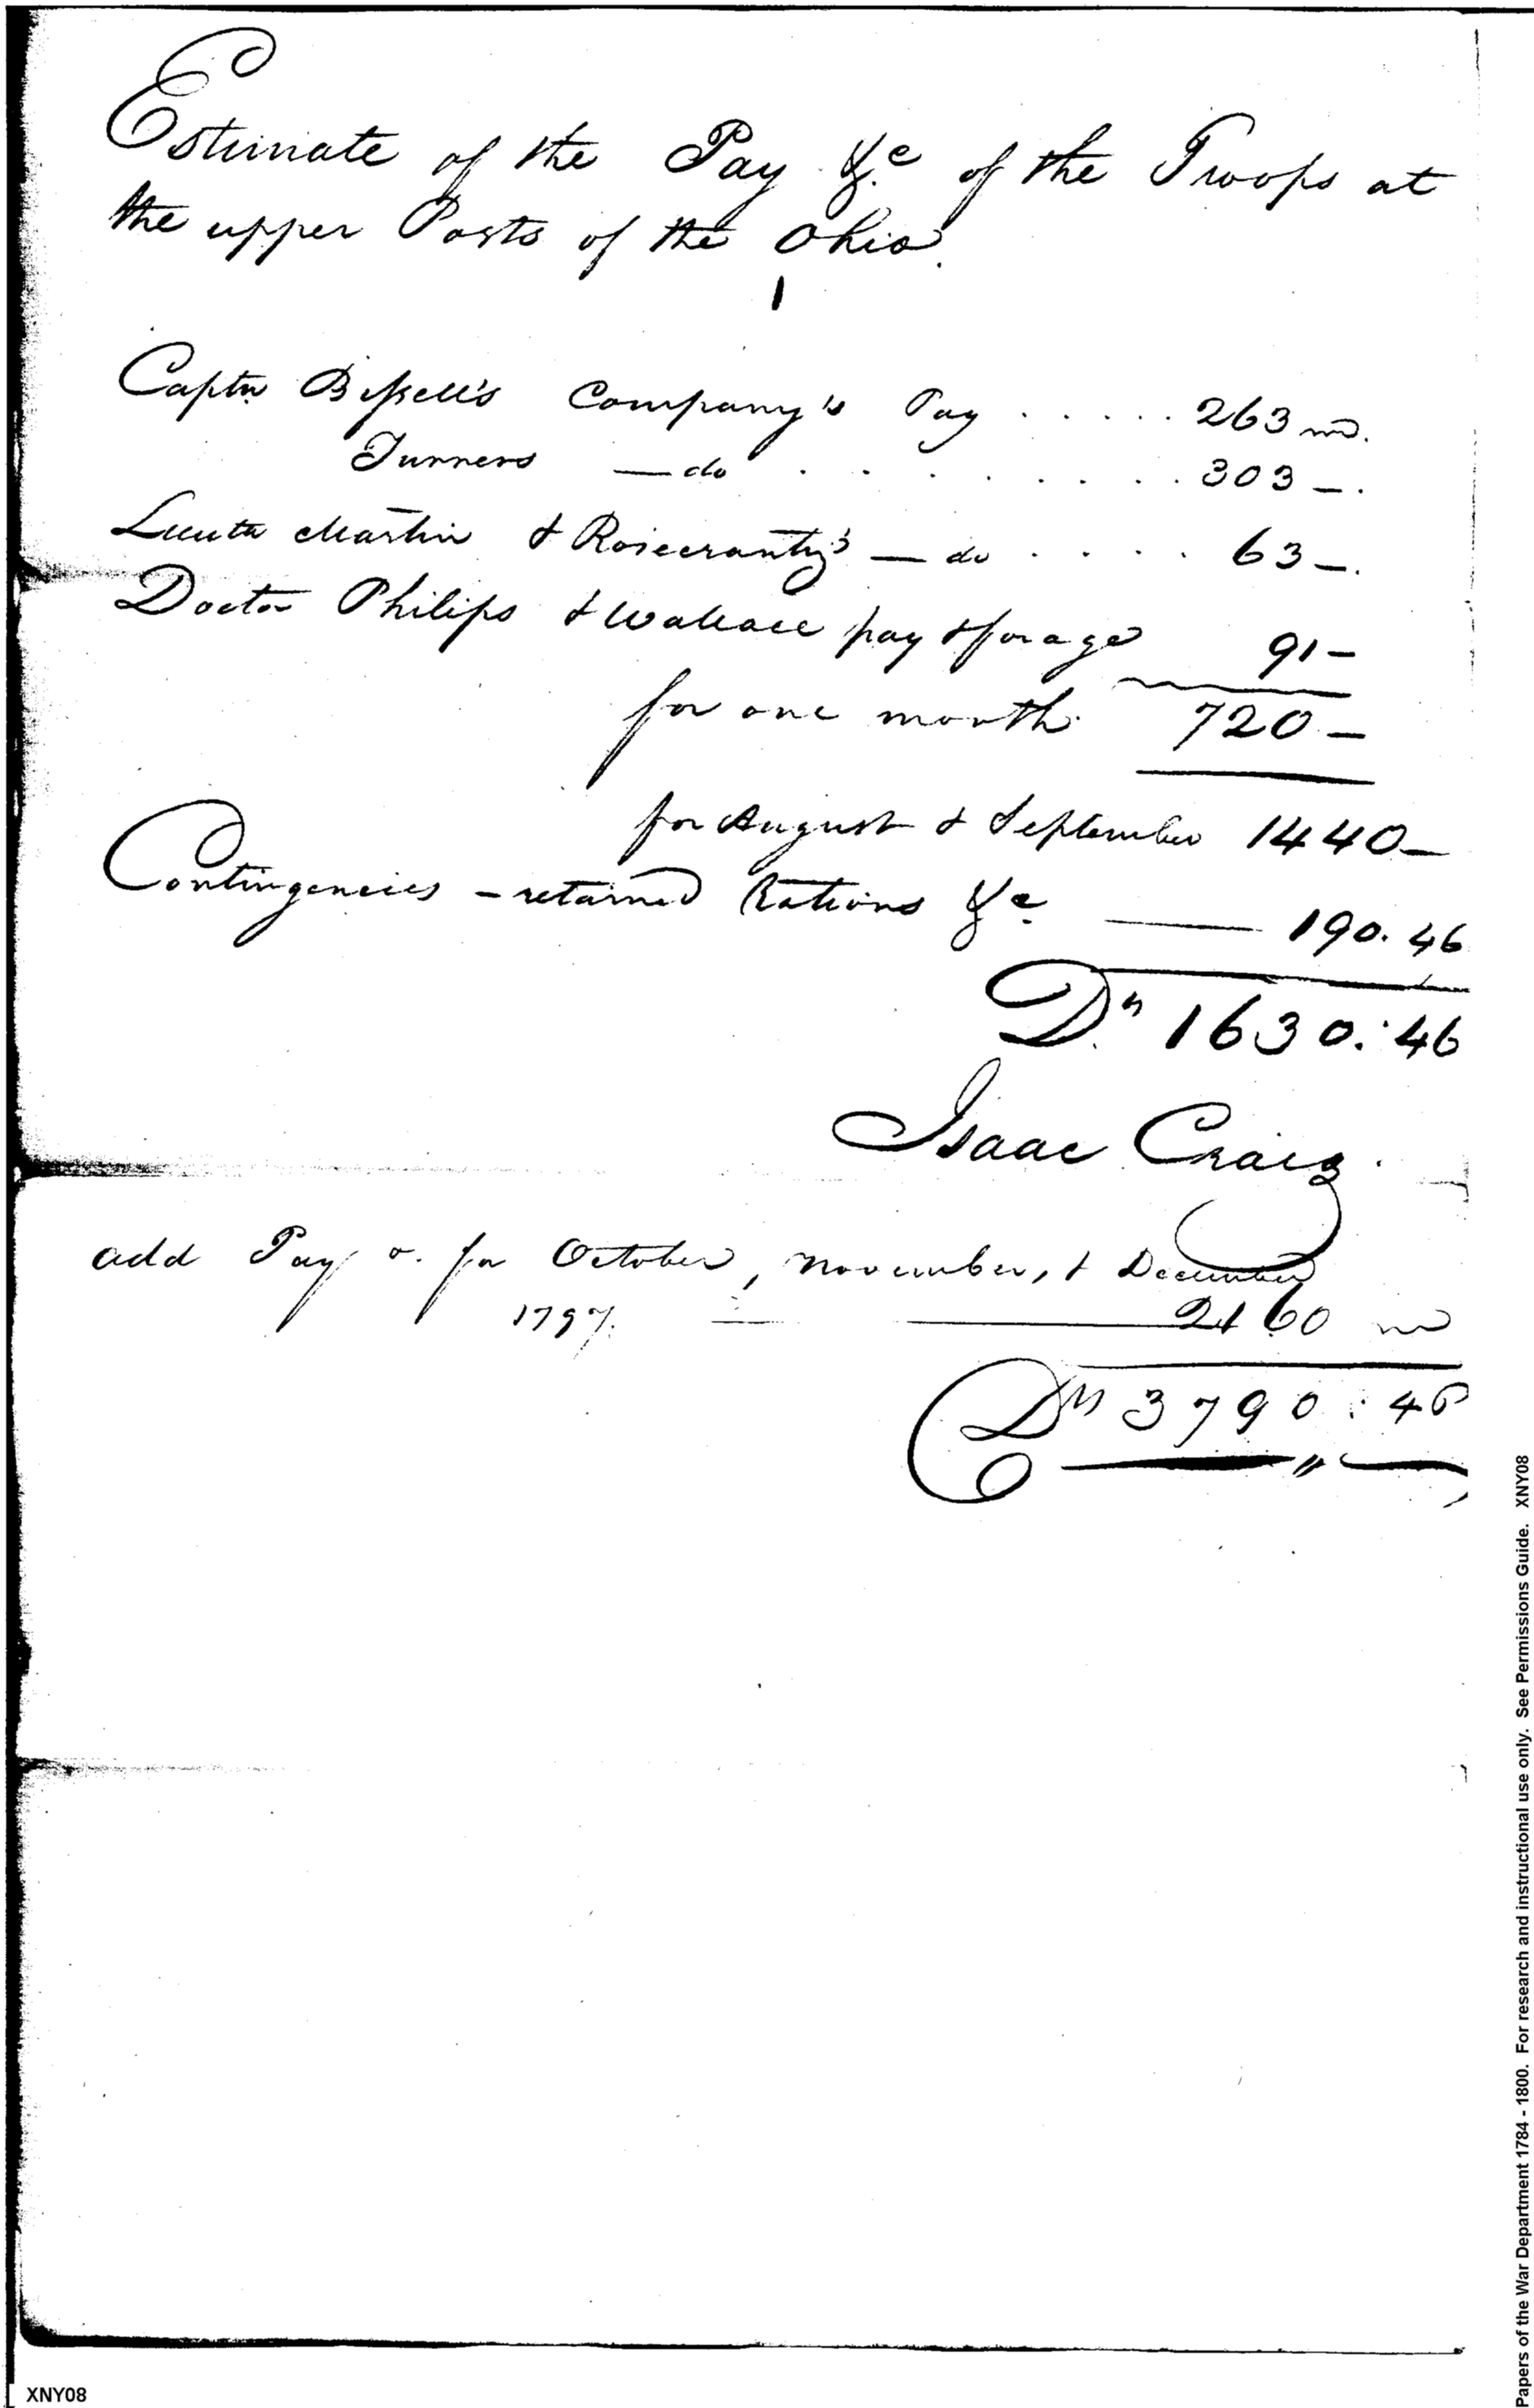 Estimate of the Pay &c of the Troops at
the upper Posts of the Ohio.
Captn Bissell's Company's Pay ..... 263
Turners — do ......... 303 —.
Lieuts Martin & Rosecrantz's — do .... 63 —.
Doctor Philips & Wallace pay & forage 91 —
for one month 720 —
for August & September 1440 —
Contingencies — retained Rations &c —— 190.46
Drs 1630:46
Isaac Craig
add Pay &c. for October, November, & December
1797. —— 2160
Drs 3790:46
XNY08
Papers of the War Department 1784 - 1800. For research and instructional use only. See Permissions Guide. XNY08